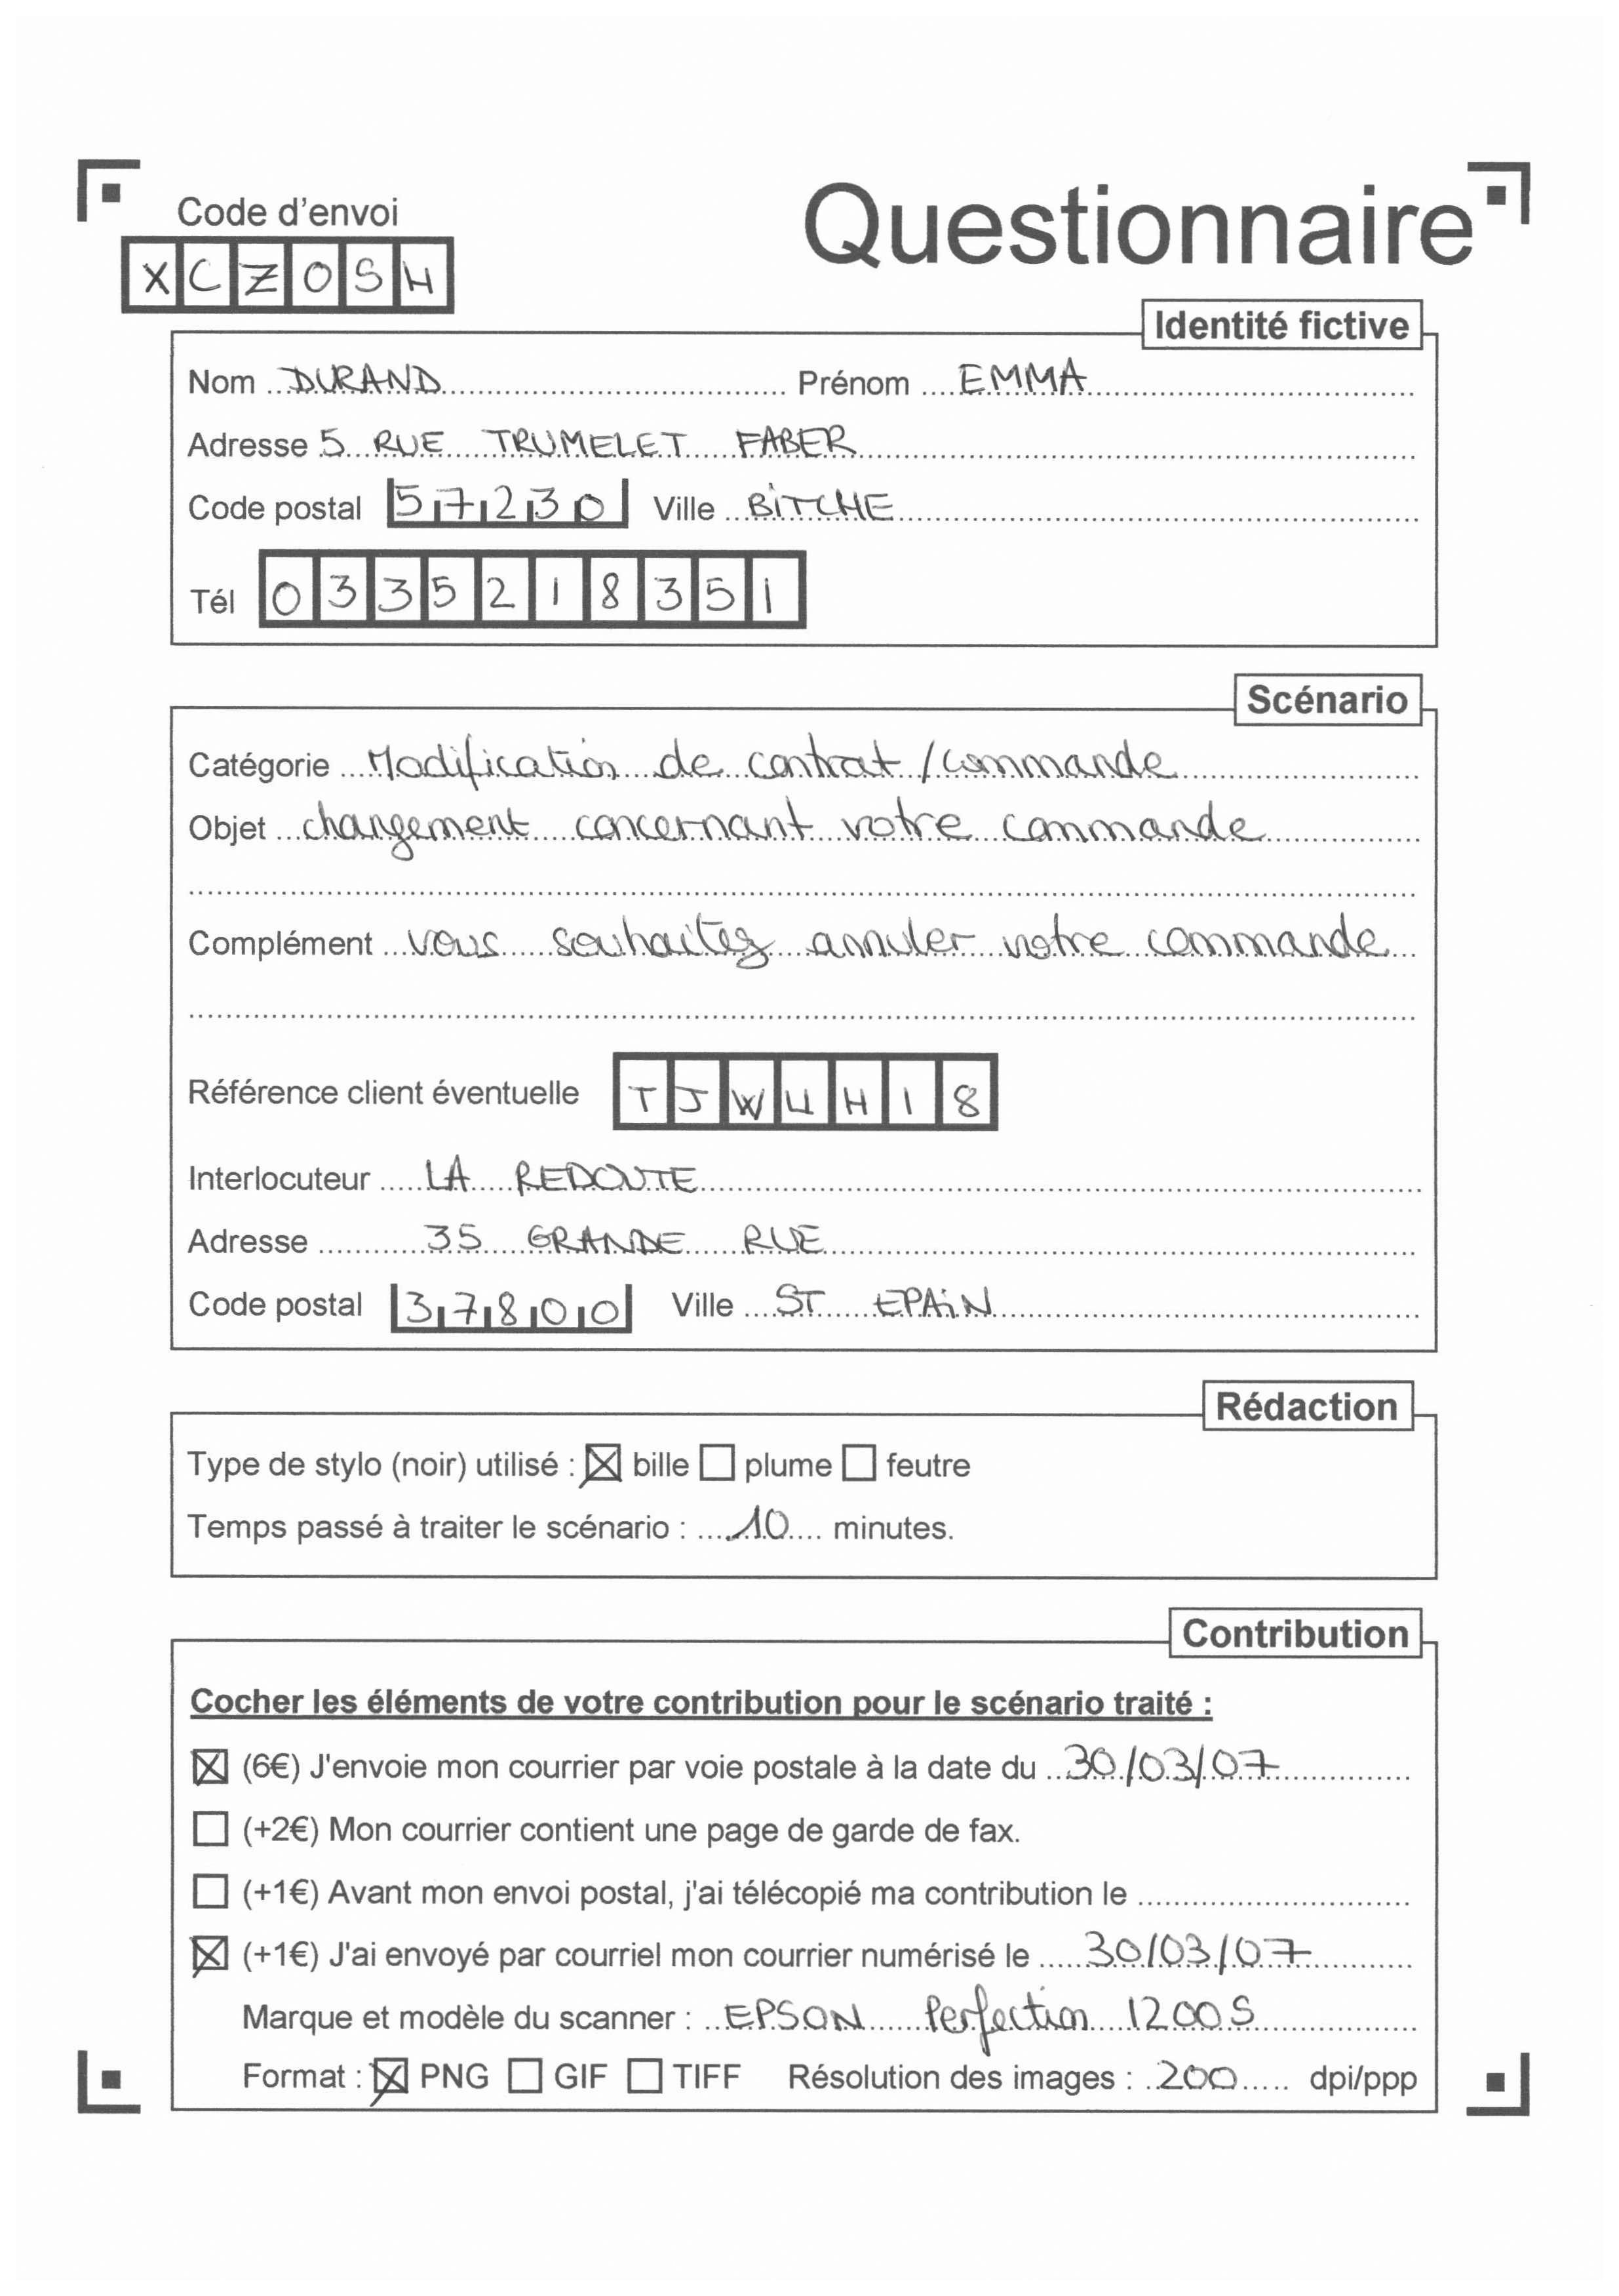 Code d'envoi
Questionnaire
XCZOSH
Identité fictive
Nom DURAND Prénom EMMA
Adresse 5 RUE TRUMELET FABER
Code postal 57230 Ville BITCHE
Tél 0335218351
Scénario
Catégorie Modification de contrat / commande
Objet changement concernant votre commande
Complément vous souhaitez annuler votre commande
Référence client éventuelle TJWUH18
Interlocuteur LA REDOUTE
Adresse 35 GRANDE RUE
Code postal 37800 Ville ST EPAIN
Rédaction
Type de stylo (noir) utilisé : ☒ bille ☐ plume ☐ feutre
Temps passé à traiter le scénario : 10 minutes.
Contribution
Cocher les éléments de votre contribution pour le scénario traité :
☒ (6€) J'envoie mon courrier par voie postale à la date du 30/03/07
☐ (+2€) Mon courrier contient une page de garde de fax.
☐ (+1€) Avant mon envoi postal, j'ai télécopié ma contribution le
☒ (+1€) J'ai envoyé par courriel mon courrier numérisé le 30/03/07
Marque et modèle du scanner : EPSON Perfection 1200S
Format : ☒ PNG ☐ GIF ☐ TIFF Résolution des images : 200 dpi/ppp